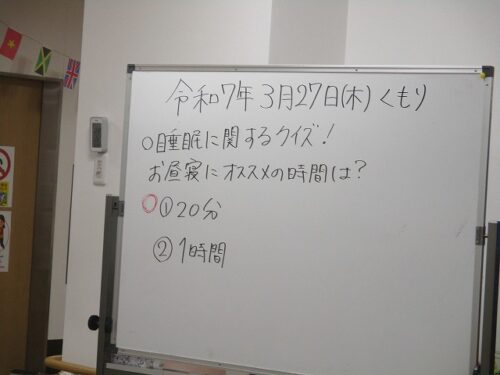 令和7年3月27日(木)くもり
○睡眠に関するクイズ!
お昼寝にオススメの時間は?
○①20分
②1時間